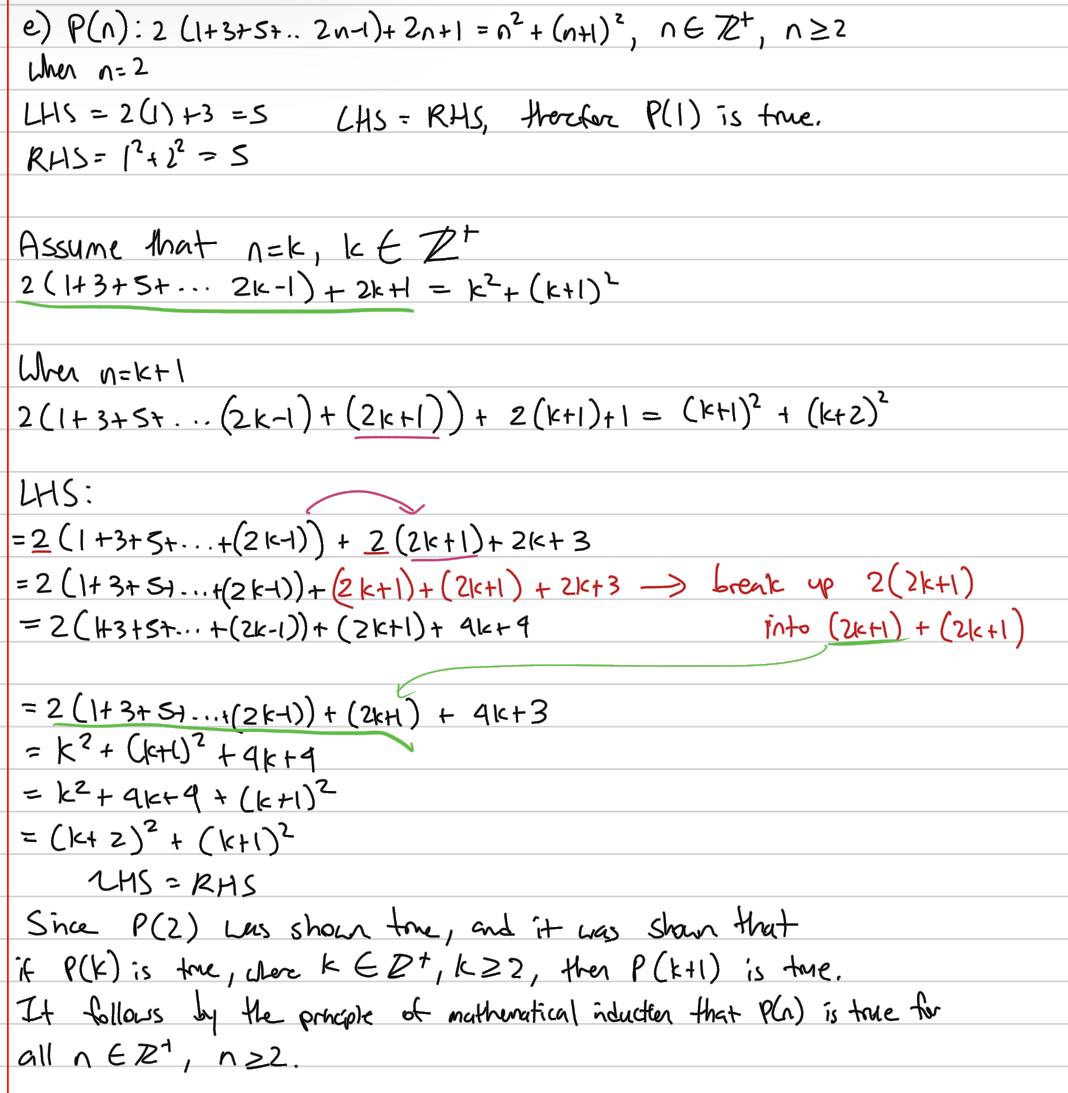 e) P(n): 2 (1+3+5+.. 2n-1)+ 2n+1 = n² + (n+1)², n ∈ ℤ⁺, n ≥ 2
When n=2
LHS = 2(1)+3 = 5 LHS = RHS, therfor P(1) is true.
RHS = 1² + 2² = 5
Assume that n=k, k ∈ ℤ⁺
2(1+3+5+... 2k-1)+ 2k+1 = k² + (k+1)²
When n=k+1
2(1+3+5+...(2k-1)+(2k+1)) + 2(k+1)+1 = (k+1)² + (k+2)²
LHS:
=2(1+3+5+...+(2k-1)) + 2(2k+1)+2k+3
=2(1+3+5+...+(2k-1))+(2k+1)+(2k+1)+2k+3 → break up 2(2k+1)
=2(1+3+5+...+(2k-1))+(2k+1)+4k+4 into (2k+1)+(2k+1)
=2(1+3+5+...+(2k-1))+(2k+1) + 4k+3
= k² + (k+1)² + 4k+4
= k² + 4k+4 + (k+1)²
= (k+2)² + (k+1)²
LHS = RHS
Since P(2) was shown true, and it was shown that
if P(k) is true, where k ∈ ℤ⁺, k ≥ 2, then P(k+1) is true.
It follows by the principle of mathematical induction that P(n) is true for
all n ∈ ℤ⁺, n ≥ 2.